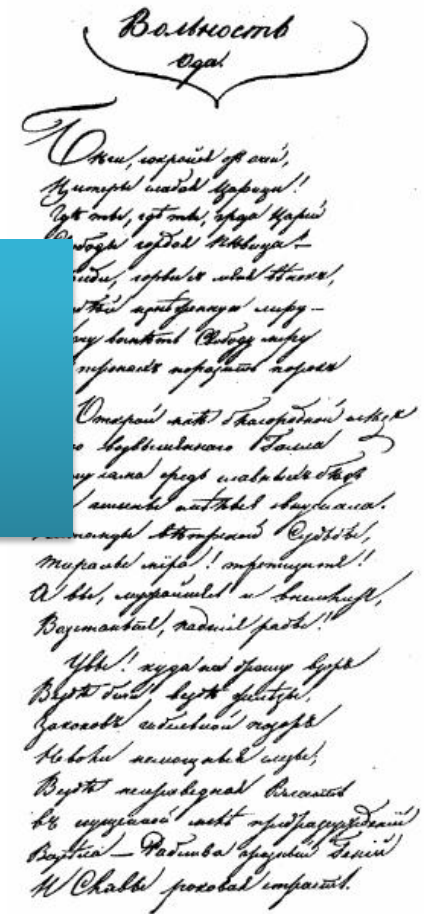 Вольность
Ода.
Бѣги, сокройся отъ очей,
Цитеры слабая Царица!
Гдѣ ты, гдѣ ты, гроза Царей
гордая пѣвица? —
сорви съ меня вѣнокъ,
изнѣженную лиру —
воспѣть Свободу міру
тронахъ поразить порокъ
Открой мнѣ благородной слѣдъ
возвышеннаго Галла
сама средь славныхъ бѣдъ
гимны смѣлыя внушала.
вѣтреной Судьбы,
Тираны міра! трепещите!
А вы, мужайтесь и внемлите,
Возстаньте, падшіе рабы!
Увы! куда ни брошу взоръ
Вездѣ бичи вездѣ желѣзы,
Законовъ гибельной позоръ
Неволи немощныя слезы;
Вездѣ неправедная Власть
Въ сгущенной мглѣ предразсужденій
Возсѣла — Рабства грозный Геній
И Славы роковая страсть.